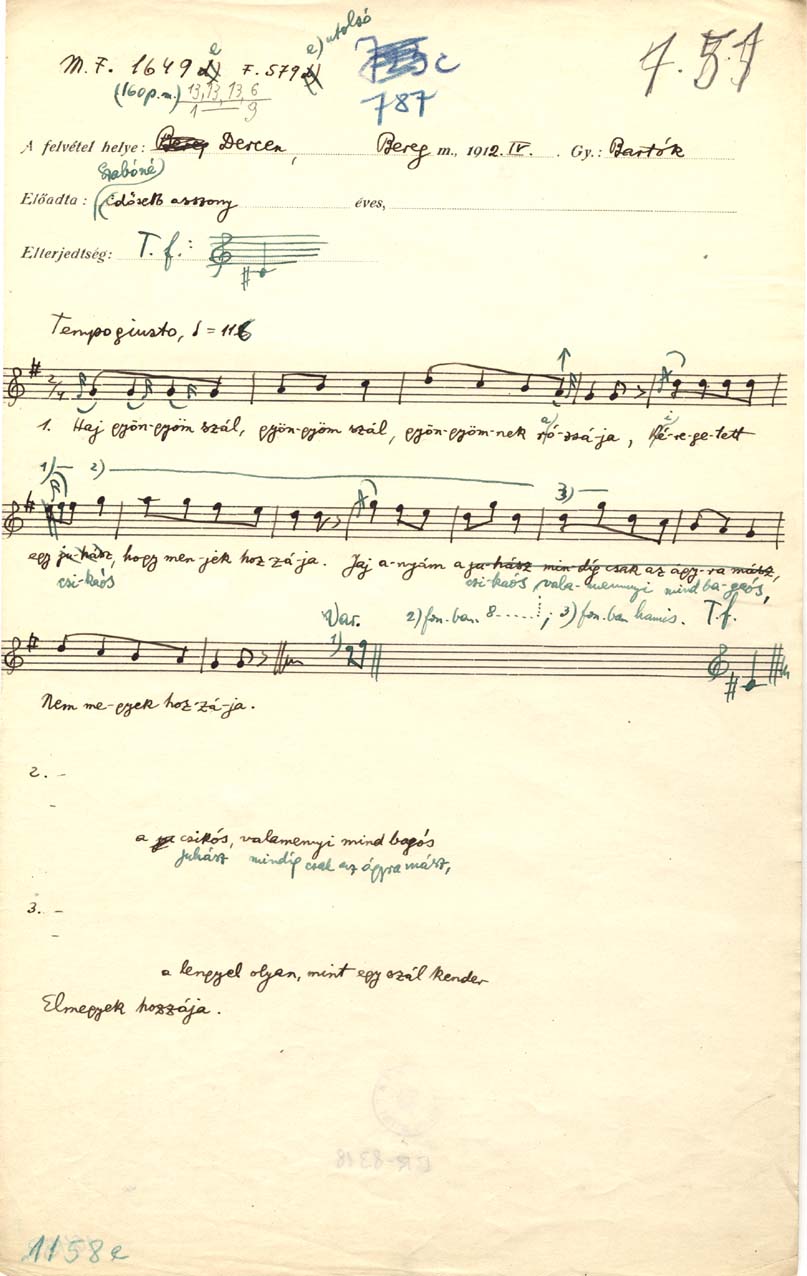 M. F. 1649 e) F. 579 e) utolsó
c
787
(160 p.m.) 13, 13, 13, 6
1 — 9
A felvétel helye: Dercen, Bereg m., 1912. IV. . Gy.: Bartók
Szabóné
Előadta: (idősebb asszony éves,
Elterjedtség: T. f.:
Tempo giusto, = 116
2/4
1. Haj gyön-gyöm szál, gyön-gyöm szál, gyön-gyöm-nek ró-zsá-ja, Ké-re-ge-tett
1) 2) 3)
egy ju-hász, hogy men-jek hoz-zá-ja. Jaj a-nyám a ju-hász min-díg csak az ágy-ra mász,
csi-kaós csi-kaós, vala-mennyi mind ba-gaós,
Var. 2) fon.ban 8......; 3) fon.ban hamis. T.f.
1)
Nem me-gyek hoz-zá-ja.
2. –
–
a csikós, valamenyi mind bagós
juhász mindíg csak az ágyra mász,
3. –
–
a lengyel olyan, mint egy szál kender
Elmegyek hozzája.
1158e